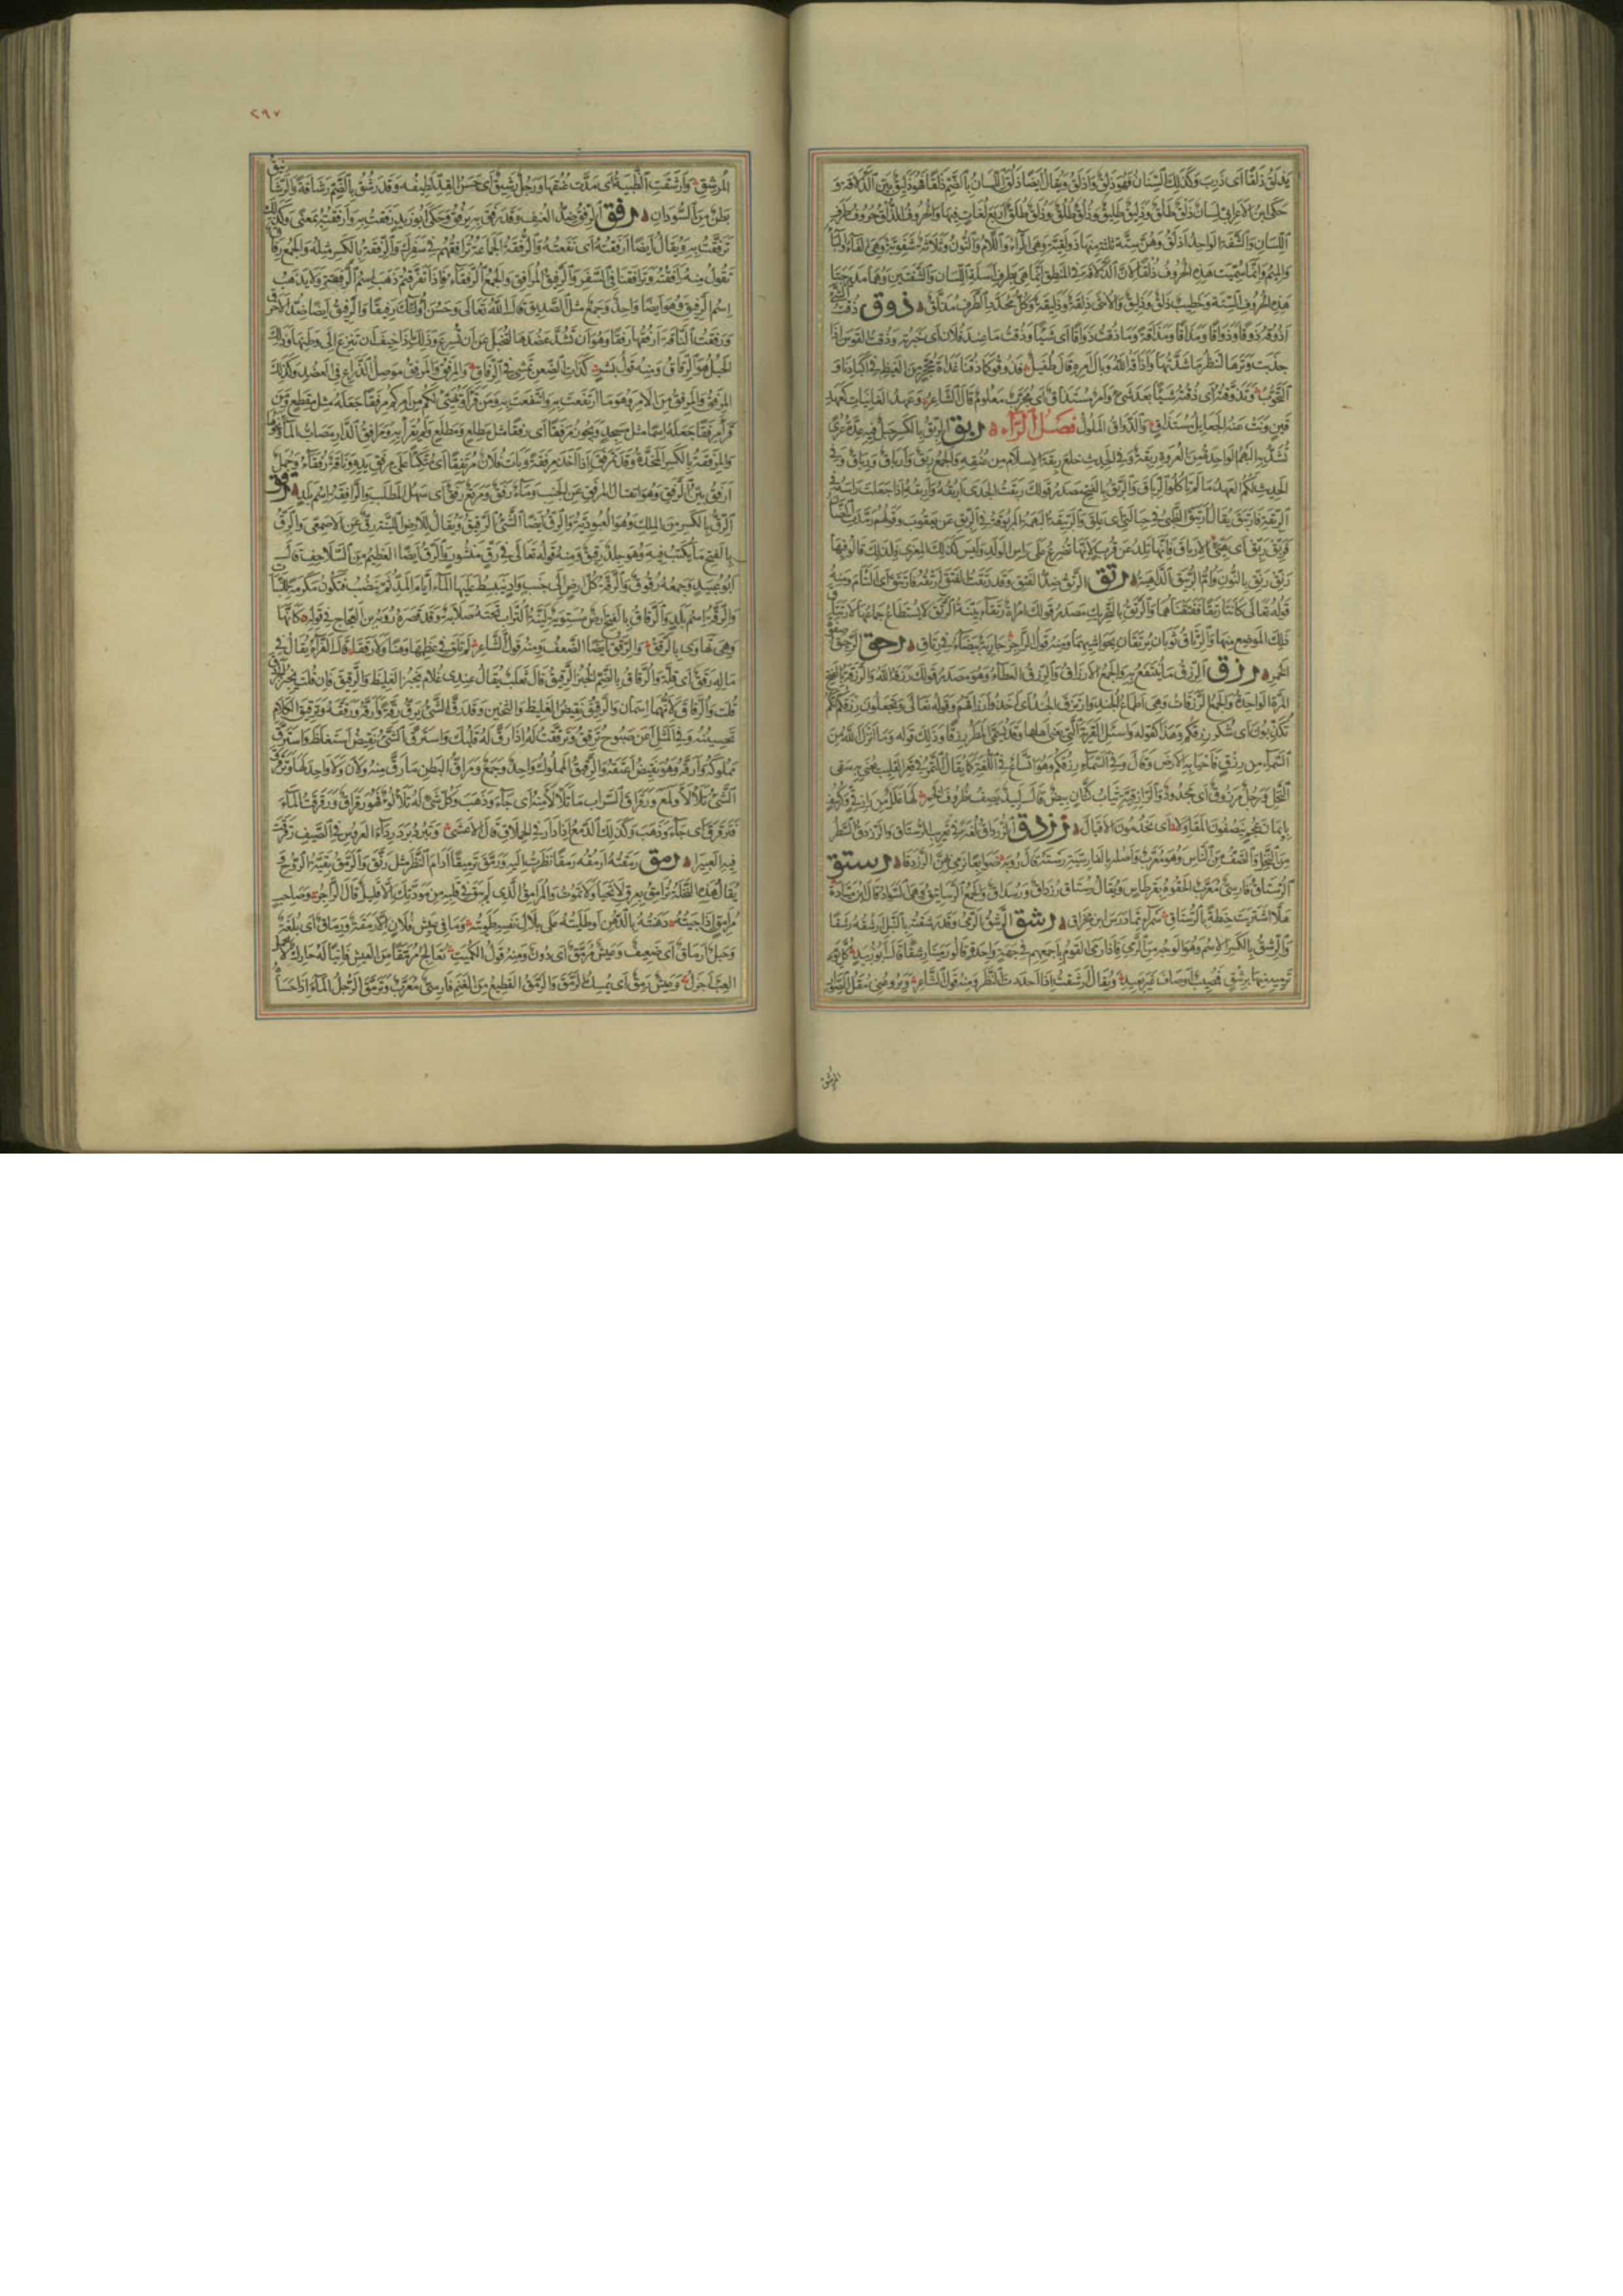 يذلق ذلقا اى ذرب وكذلك السنان فهو ذلق واذلق ويقال ايضا ذلق اللسان بالضم ذلقا فهو ذليق بين الذلاقة و
حكى ابن الاعرابى لسان ذلق طلق وذليق طليق وذلق طلق وذلق طلق اربع لغات فيها والحروف الذلق حروف طرف
اللسان والشفة الواحد اذلق وهن ستة ثلثة منها ذولقية وهى الراء واللام والنون وثلاثة شفوية وهى الفاء والباء
والميم وانما سميت هذه الحروف ذلقا لان الذلاقة فى المنطق انما هى بطرف اسلة اللسان والشفتين وهما مدرجتا
هذه الحروف الستة وخطيب ذلق وذليق والانثى ذلقة وذليقة وكل محدد الطرف مذلق ذوق ذقت الشئ
اذوقه ذوقا وذواقا ومذاقا ومذاقة وما ذقت ذواقا اى شيئا وذقت ما عند فلان اى خبرته وذقت القوس اذا
جذبت وترها لتنظر ما شدتها واذاقه الله وبال امره قال طفيل فذوقوا كما ذقنا غداة محجر من الغيظ فى اكبادنا و
التحوب وتذوقته اى ذقته شيئا بعد شئ وامر مستذاق اى مجرب معلوم قال الشاعر وعهد الغانيات كعهد
قين ونت عنه الجعائل مستذاق والذواق الملول فصل الراء ربق الربق بالكسر حبل فيه عدة عرى
تشد به البهم الواحدة من العروة ربقة وفى الحديث خلع ربقة الاسلام من عنقه والجمع ربق وارباق ورباق وفى
الحديث لكم العهد ما لم تاكلوا الرباق والربق بالفتح مصدر قولك ربقت الجدى اربقه واربقه اذا جعلت راسه فى
الربقة فارتبق يقال ارتبق الظبى فى حبالتى اى علق والربيقة البهمة المربوقة فى الربق عن يعقوب وقولهم رمدت الضان
فربق ربق اى هيئ الارباق فانها تلد عن قرب لانها تضرع على راس الولد وليس كذلك المعزى فلذلك قالوا فيها
رنق رنق بالنون وام الربيق الداهية رتق الرتق ضد الفتق وقد رتقت الفتق ارتقه فارتتق اى التام ومنه
قوله تعالى كانتا رتقا ففتقناهما والرتق بالتحريك مصدر قولك امراة رتقاء بينة الرتق لا يستطاع جماعها لارتتاق
ذلك الموضع منها والرتاق ثوبان يرتقان بحواشيهما ومنه قول الراجز جارية بيضاء فى رتاق رحق الرحيق صفوة
الخمر رزق الرزق ما ينتفع به والجمع الارزاق والرزق العطاء وهو مصدر قولك رزقه الله والرزقة بالفتح
المرة الواحدة والجمع الرزقات وهى اطماع الجند وارتزق الجند اى اخذوا ارزاقهم وقوله تعالى وتجعلون رزقكم انكم
تكذبون اى شكر رزقكم وهذا كقوله واسئل القرية التى يعنى اهلها وقد يسمى المطر رزقا وذلك قوله وما انزل الله من
السماء من رزق فاحيا به الارض وقال وفى السماء رزقكم وهو اتساع فى اللغة كما يقال التمر فى قعر القليب يعنى به سقى
النخل ورجل مرزوق اى مجدود والرازقية ثياب كتان بيض قال لبيد يصف ظروف الخمر لها غلل من رازقى وكرسف
بايمان عجم ينصفون المقاولا اى يخدمون الاقيال رزدق الرزداق لغة فى تعريب الرستاق والرزدق السطر
من النخل والصف من الناس وهو معرب واصله بالفارسية رسته قال روبة ضوابعا نرمى بهن الرزدقا رستق
الرستاق فارسى معرب الحقوه بقرطاس ويقال رستاق ورزداق ورسداق والجمع الرساتيق وهى السواد قال ابن ميادة
هلا اشتريت حنطة بالرستاق سمراء مما درس ابن مخراق رشق الرشق الرمى وقد رشقته بالنبل ارشقه رشقا
والرشق بالكسر الاسم وهو الوجه من الرمى فاذا رمى القوم باجمعهم فى جهة واحدة قالوا رمينا رشقا قال ابو زبيد كل يوم
ترميه منها برشق فمصيب اوصاف غير بعيد ويقال ارشقت اذا احددت النظر ومنه قول الشاعر ويروعنى مقل الصوار
المرشق
٢٩٧
المرشق وارشقت الظبية اى مدت عنقها ورجل رشيق اى حسن القد لطيفه وقد رشق بالضم رشاقة والرشا
بطن من السودان رفق الرفق ضد العنف وقد رفق به يرفق وحكى ابو زيد رفقت به وارفقته بمعنى وكذلك
ترفقت به ويقال ايضا ارفقته اى نفعته والرفقة الجماعة ترافقهم فى سفرك والرفقة بالكسر مثله والجمع رفاق
تقول منه رافقته وترافقنا فى السفر والرفيق المرافق والجمع الرفقاء فاذا تفرقتم ذهب اسم الرفقة ولا يذهب
اسم الرفيق وهو ايضا واحد وجمع مثل الصديق قال الله تعالى وحسن اولئك رفيقا والرفيق ايضا ضد الاخرق
ورفقت الناقة ارفقها رفقا وهو ان تشد عضدها لتخبل عن ان تسرع وذلك اذا خيف ان تنزع الى وطنها وذلك
الحبل هو الرفاق ومنه قول بشر كذات الضغن تمشى فى الرفاق والمرفق والمرفق موصل الذراع فى العضد وكذلك
المرفق والمرفق من الامر وهو ما ارتفقت به وانتفعت به ومن قرا ويهيئ لكم من امركم مرفقا جعله مثل مقطع ومن
قرا مرفقا جعله اسما مثل مسجد ويجوز مرفقا اى رفقا مثل مطلع ومطلع ولم يقرا به ومرافق الدار مصاب الماء ونحوها
والمرفقة بالكسر المخدة وقد تمرفق اذا اخذ مرفقة وبات فلان مرتفقا اى متكئا على مرفق يده وناقة رفقاء وجمل
ارفق بين الرفق وهو انفتال المرفق عن الجنب وماء رفق ومرتع رفق اى سهل المطلب والرافقة اسم بلد رقق
الرق بالكسر من الملك وهو العبودية والرق ايضا الشئ الرقيق ويقال للارض اللينة رق عن الاصمعى والرق
بالفتح ما يكتب فيه وهو جلد رقيق ومنه قوله تعالى فى رق منشور والرق ايضا العظيم من السلاحف قال
ابو عبيد وجمعه رقوق والرقة كل ارض الى جنب واد ينبسط عليها الماء ايام المد ثم ينضب فتكون مكرمة للنبات
والرقة اسم بلد والرقاق بالفتح ارض مستوية لينة التراب تحته صلابة وقد قصره روبة بن العجاج فى قوله كانها
وهى تهاوى بالرقق والرقق ايضا الضعف ومنه قول الشاعر لم تلق فى عظمها وهنا ولا رققا قال الفراء يقال فى
ماله رقق اى قلة والرقاق بالضم الخبز الرقيق قال ثعلب يقال عندى غلام يخبز الغليظ والرقيق فان قلت يخبز الجردق
قلت والرقاق لانهما اسمان والرقيق نقيض الغليظ والثخين وقد رق الشئ يرق رقة وارقه ورققه وترقيق الكلام
تحسينه وفى المثل اعن صبوح ترقق وترققت له اذا رق له قلبك واسترق الشئ نقيض استغلظ واسترق
مملوكه وارقه وهو نقيض اعتقه والرقيق المملوك واحد وجمع ومراق البطن ما رق منه ولان ولا واحد لها وترقرق
الشئ تلالا ولمع ورقراق السراب ما تلالا منه اى جاء وذهب وكل شئ له تلالؤ فهو رقراق ورقرقت الماء
فترقرق اى جاء وذهب وكذلك الدمع اذا دار فى الحملاق قال الاعشى وتبرد برد رداء العروس فى الصيف رقرقت
فيه العبيرا رمق رمقته ارمقه رمقا نظرت اليه ورمق ترميقا ادام النظر مثل رنق والرمق بقية الروح
يقال هذه النخلة ترامق بعرق لا تحيا ولا تموت والمرامق الذى لم يبق فى قلبه من مودتك الا قليل قال الراجز وصاحب
مرامق داجيته دهنته بالدهن او طليته على بلال نفسه طويته وما فى عيش فلان الا رمقة ورماق اى بلغة
وحبل ارماق اى ضعيف وعيش مرمق اى دون ومنه قول الكميت نعالج مرمقا من العيش فانيا له حارك لا يحمل
العبء اجزل وعيش رمق اى يمسك الرمق والرمق القطيع من الغنم فارسى معرب وترمق الرجل الماء اذا حسا